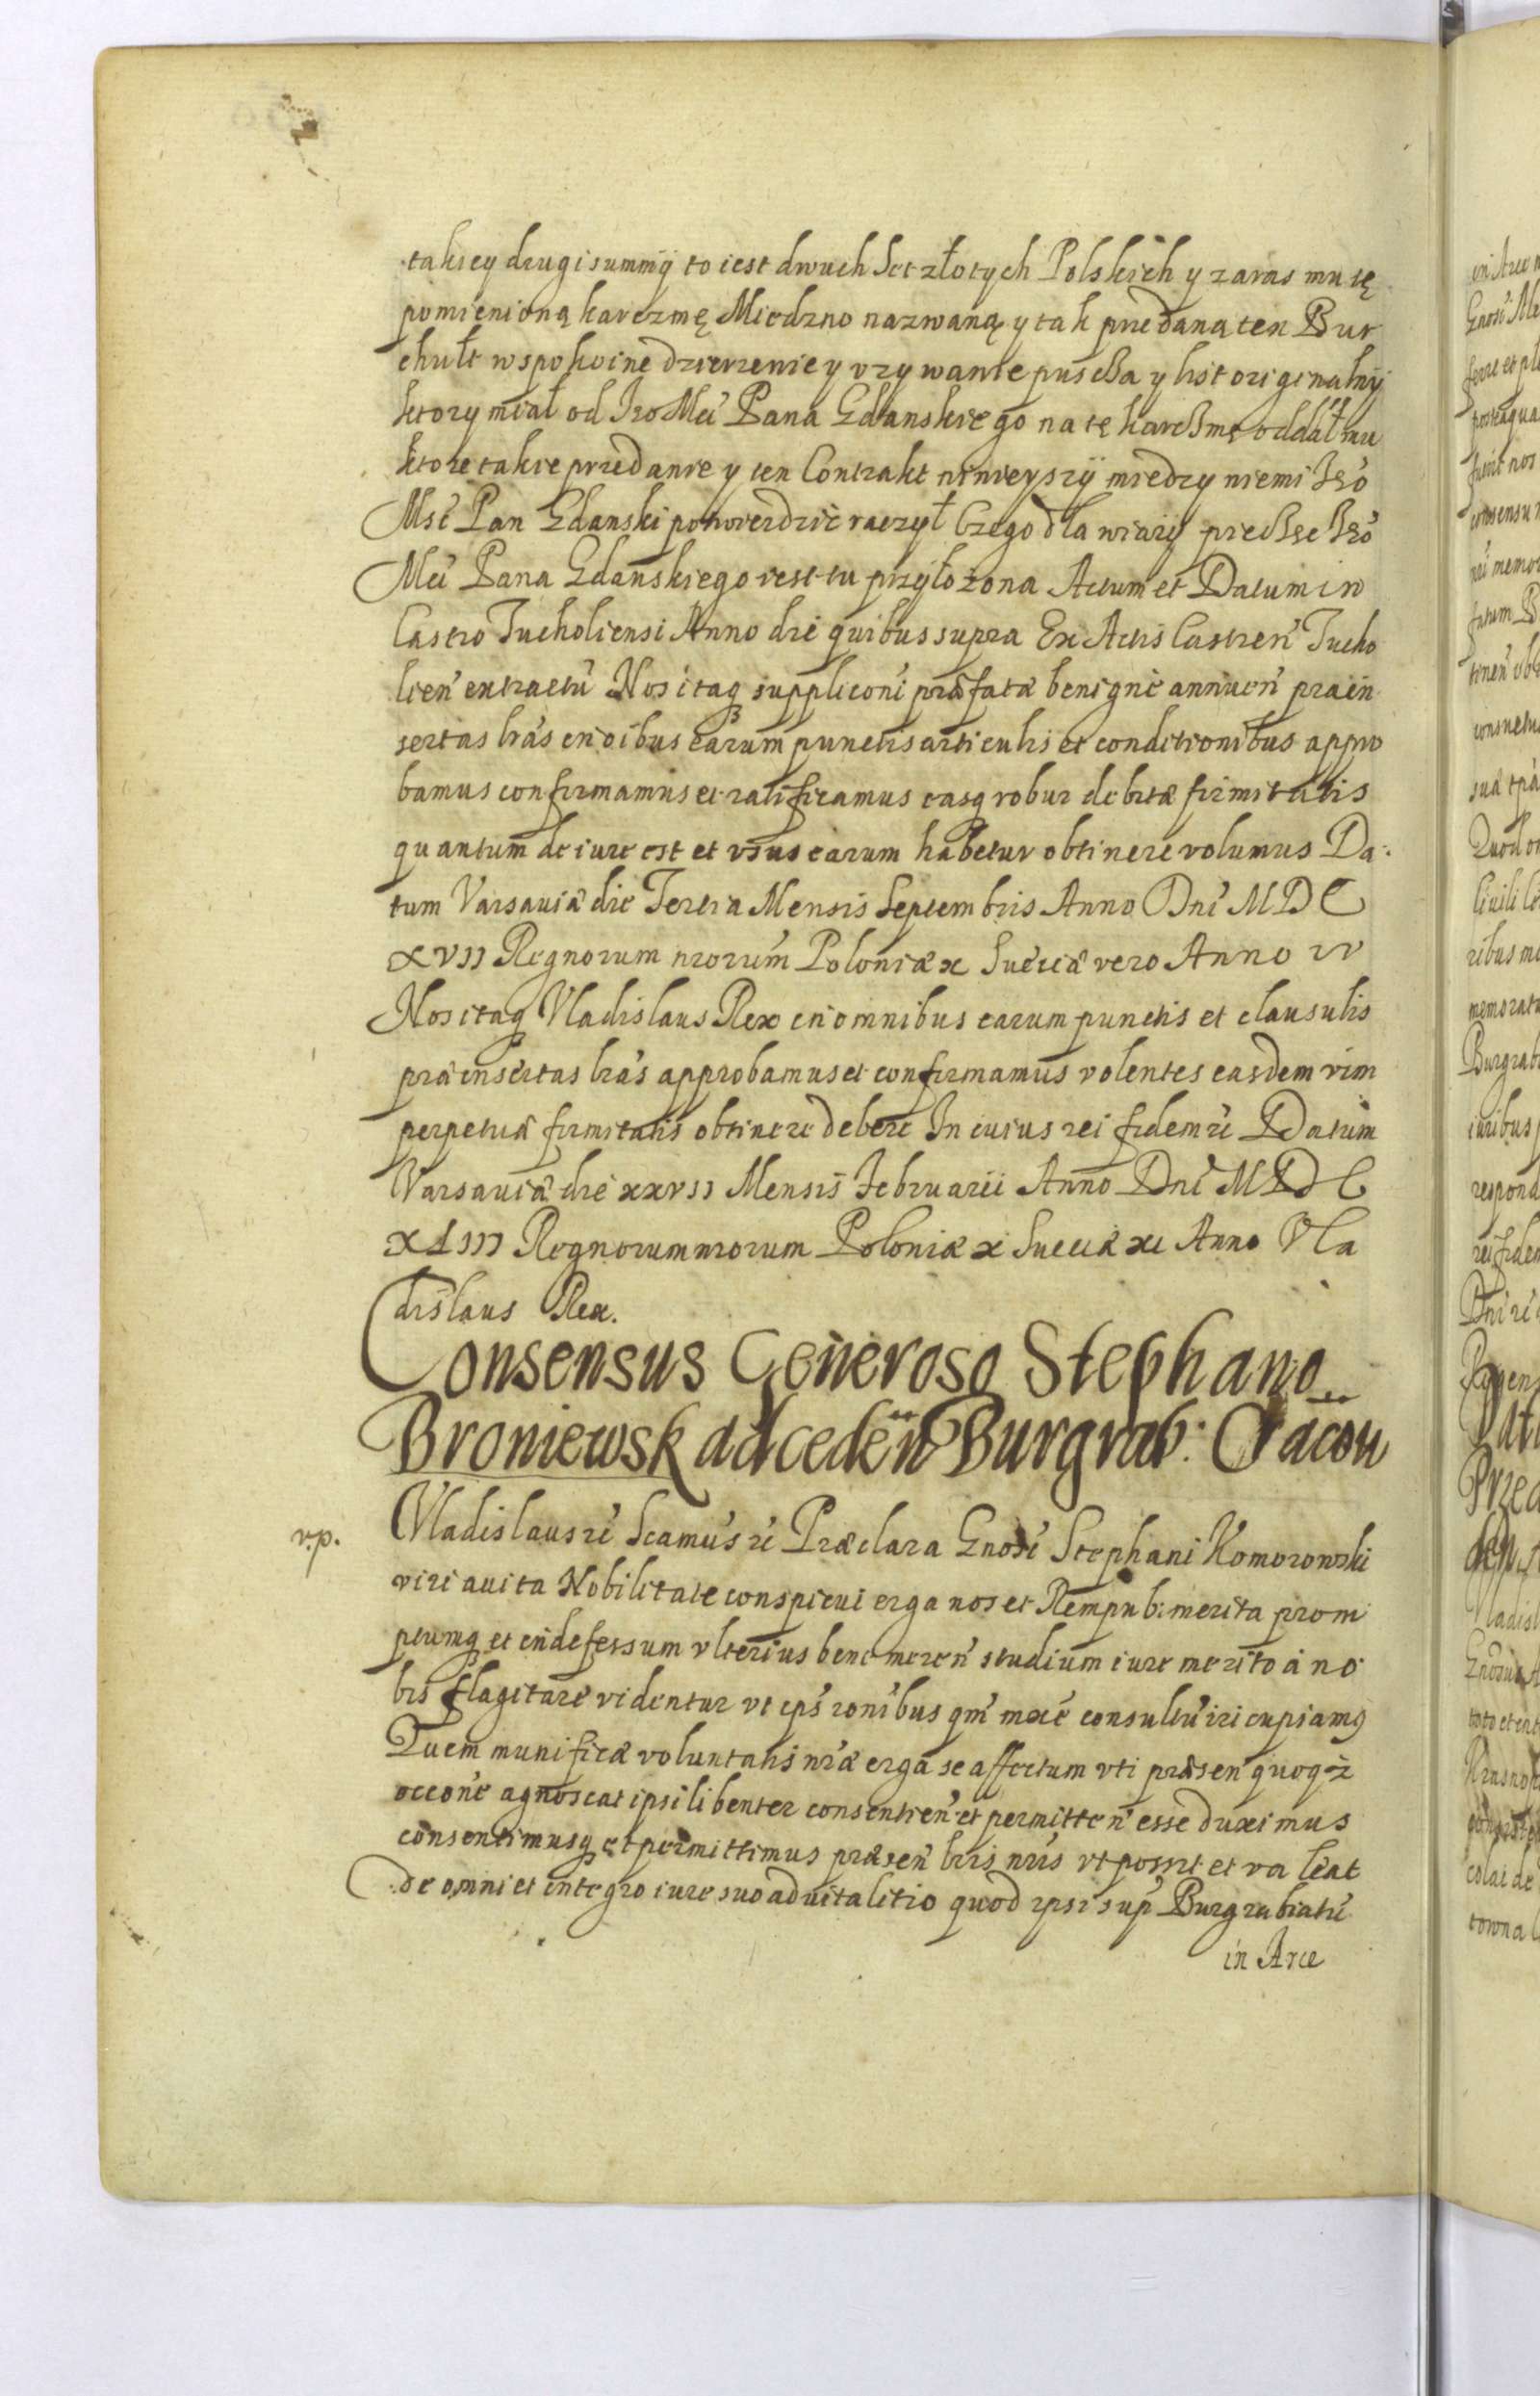 takiey drugi summÿ to iest dwuch Set złotych Polskich y zaras mu tę
pomienioną karczmę Miedzno nazwaną y tak przedaną ten Bur
chult w spokoine dzierzenie y vzywanie puscßa y list originalnÿ
ktory miał od Jeo Mci Pana Gdanskiego na tę karcßmę oddał mu
ktore takie przedanie y ten Contrakt ninieyszÿ miedzy niemi Jeo
Msć Pan Gdanski potwierdzić raczył Czego dla wiary
Mci Pana Gdanskiego iest tu przÿłozona Actum et Datum in
Castro Tucholiensi Anno die quibus supra Ex Actis Castren Tucho
lien extractu Nos itaq suppliconi præfatæ benigne annuen præin
sertas lras in oibus earum punctis articulis et conditionibus appro
bamus confirmamus et ratificamus easq robur debitæ firmitatis
quantum de iure est et vsus earum habetur obtinere volumus Da
tum Varsauiæ die Tertia Mensis Septembris Anno Dni MDC
XVII Regnorum nrorum Poloniæ x Sueciæ vero Anno IV
Nos itaq Vladislaus Rex in omnibus earum punctis et clausulis
præinsertas lras approbamus et confirmamus volentes easdem vim
perpetuæ firmitatis obtinere debere In cuius rei fidem rc Datum
Varsauiæ die xxvii Mensis Februarii Anno Dni MDC
XLIII Regnorum nrorum Poloniæ x Sueciæ xi Anno Vla
dislaus Rex.
Consensus Generoso Stephano
Broniewsk ad ceden Burgrab: Cracou
v.p.
Vladislaus rc Scamus rc Præclara Gnosi Stephani Komorowski
viri auita Nobilitate conspicui erga nos et Rempub: merita prom
ptumq et indefessum vlterius bene meren studium iure merito a no
bis flagitare videntur vt eps ronibus qm maxe consultu iri cupiamq
Quem munificæ voluntatis nræ erga se affectum vti præsen quoq
occone agnoscat ipsi libenter consentien et permitten esse duximus
consentimusq et permittimus præsen lris nris vt possit et valeat
de omni et integro iure suo aduitalitio quod ipsi sup Burgrabiatu
in Arce